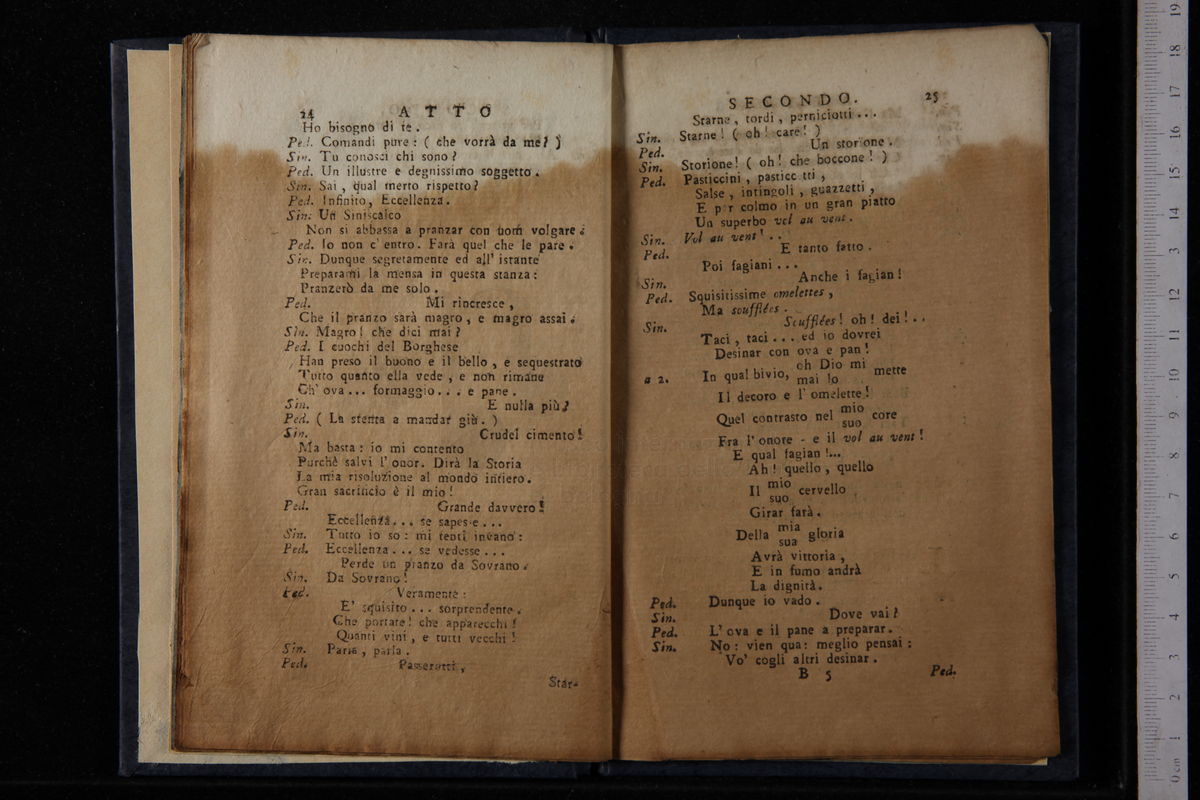 24 ATTO
Ho bisogno di te.
Ped. Comandi pure: ( che vorrà da me? )
Sin. Tu conosci chi sono?
Ped. Un illustre e degnissimo soggetto.
Sin. Sai, qual merto rispetto?
Ped. Infinito, Eccellenza.
Sin. Un Siniscalco
Non si abbassa a pranzar con uom volgare.
Ped. Io non c' entro. Farà quel che le pare.
Sin. Dunque segretamente ed all' istante
Preparami la mensa in questa stanza:
Pranzerò da me solo.
Ped. Mi rincresce,
Che il pranzo sarà magro, e magro assai.
Sin. Magro! che dici mai?
Ped. I cuochi del Borghese
Han preso il buono e il bello, e sequestrato
Tutto quanto ella vede, e non rimane
Ch' ova... formaggio... e pane.
Sin. E nulla più?
Ped. ( La stenta a mandar giù. )
Sin. Crudel cimento!
Ma basta: io mi contento
Purchè salvi l' onor. Dirà la Storia
La mia risoluzione al mondo intiero.
Gran sacrificio è il mio!
Ped. Grande davvero!
Eccellenza... se sapesse...
Sin. Tutto io so: mi tenti invano:
Ped. Eccellenza... se vedesse...
Perde un pranzo da Sovrano.
Sin. Da Sovrano!
Ped. Veramente:
E' squisito... sorprendente.
Che portate! che apparecchi!
Quanti vini, e tutti vecchi!
Sin. Parla, parla.
Ped. Passerotti,
Star-
SECONDO. 25
Starne, tordi, perniciotti...
Sin. Starne! ( oh! care! )
Ped. Un storione.
Sin. Storione! ( oh! che boccone! )
Ped. Pasticcini, pasticcetti,
Salse, intingoli, guazzetti,
E per colmo in un gran piatto
Un superbo vol au vent.
Sin. Vol au vent!..
Ped. E tanto fatto.
Poi fagiani...
Sin. Anche i fagian!
Ped. Squisitissime omelettes,
Ma soufflées.
Sin. Soufflées! oh! dei!..
Taci, taci... ed io dovrei
Desinar con ova e pan!
a 2. In qual bivio, oh Dio mi mette
mai lo
Il decoro e l' omelette!
Quel contrasto nel mio core
suo
Fra l' onore - e il vol au vent!
E qual fagian!...
Ah! quello, quello
Il mio cervello
suo
Girar farà.
Della mia gloria
sua
Avrà vittoria,
E in fumo andrà
La dignità.
Ped. Dunque io vado.
Sin. Dove vai?
Ped. L' ova e il pane a preparar.
Sin. No: vien qua: meglio pensai:
Vo' cogli altri desinar.
B 5 Ped.
0 cm 1 2 3 4 5 6 7 8 9 10 11 12 13 14 15 16 17 18 19